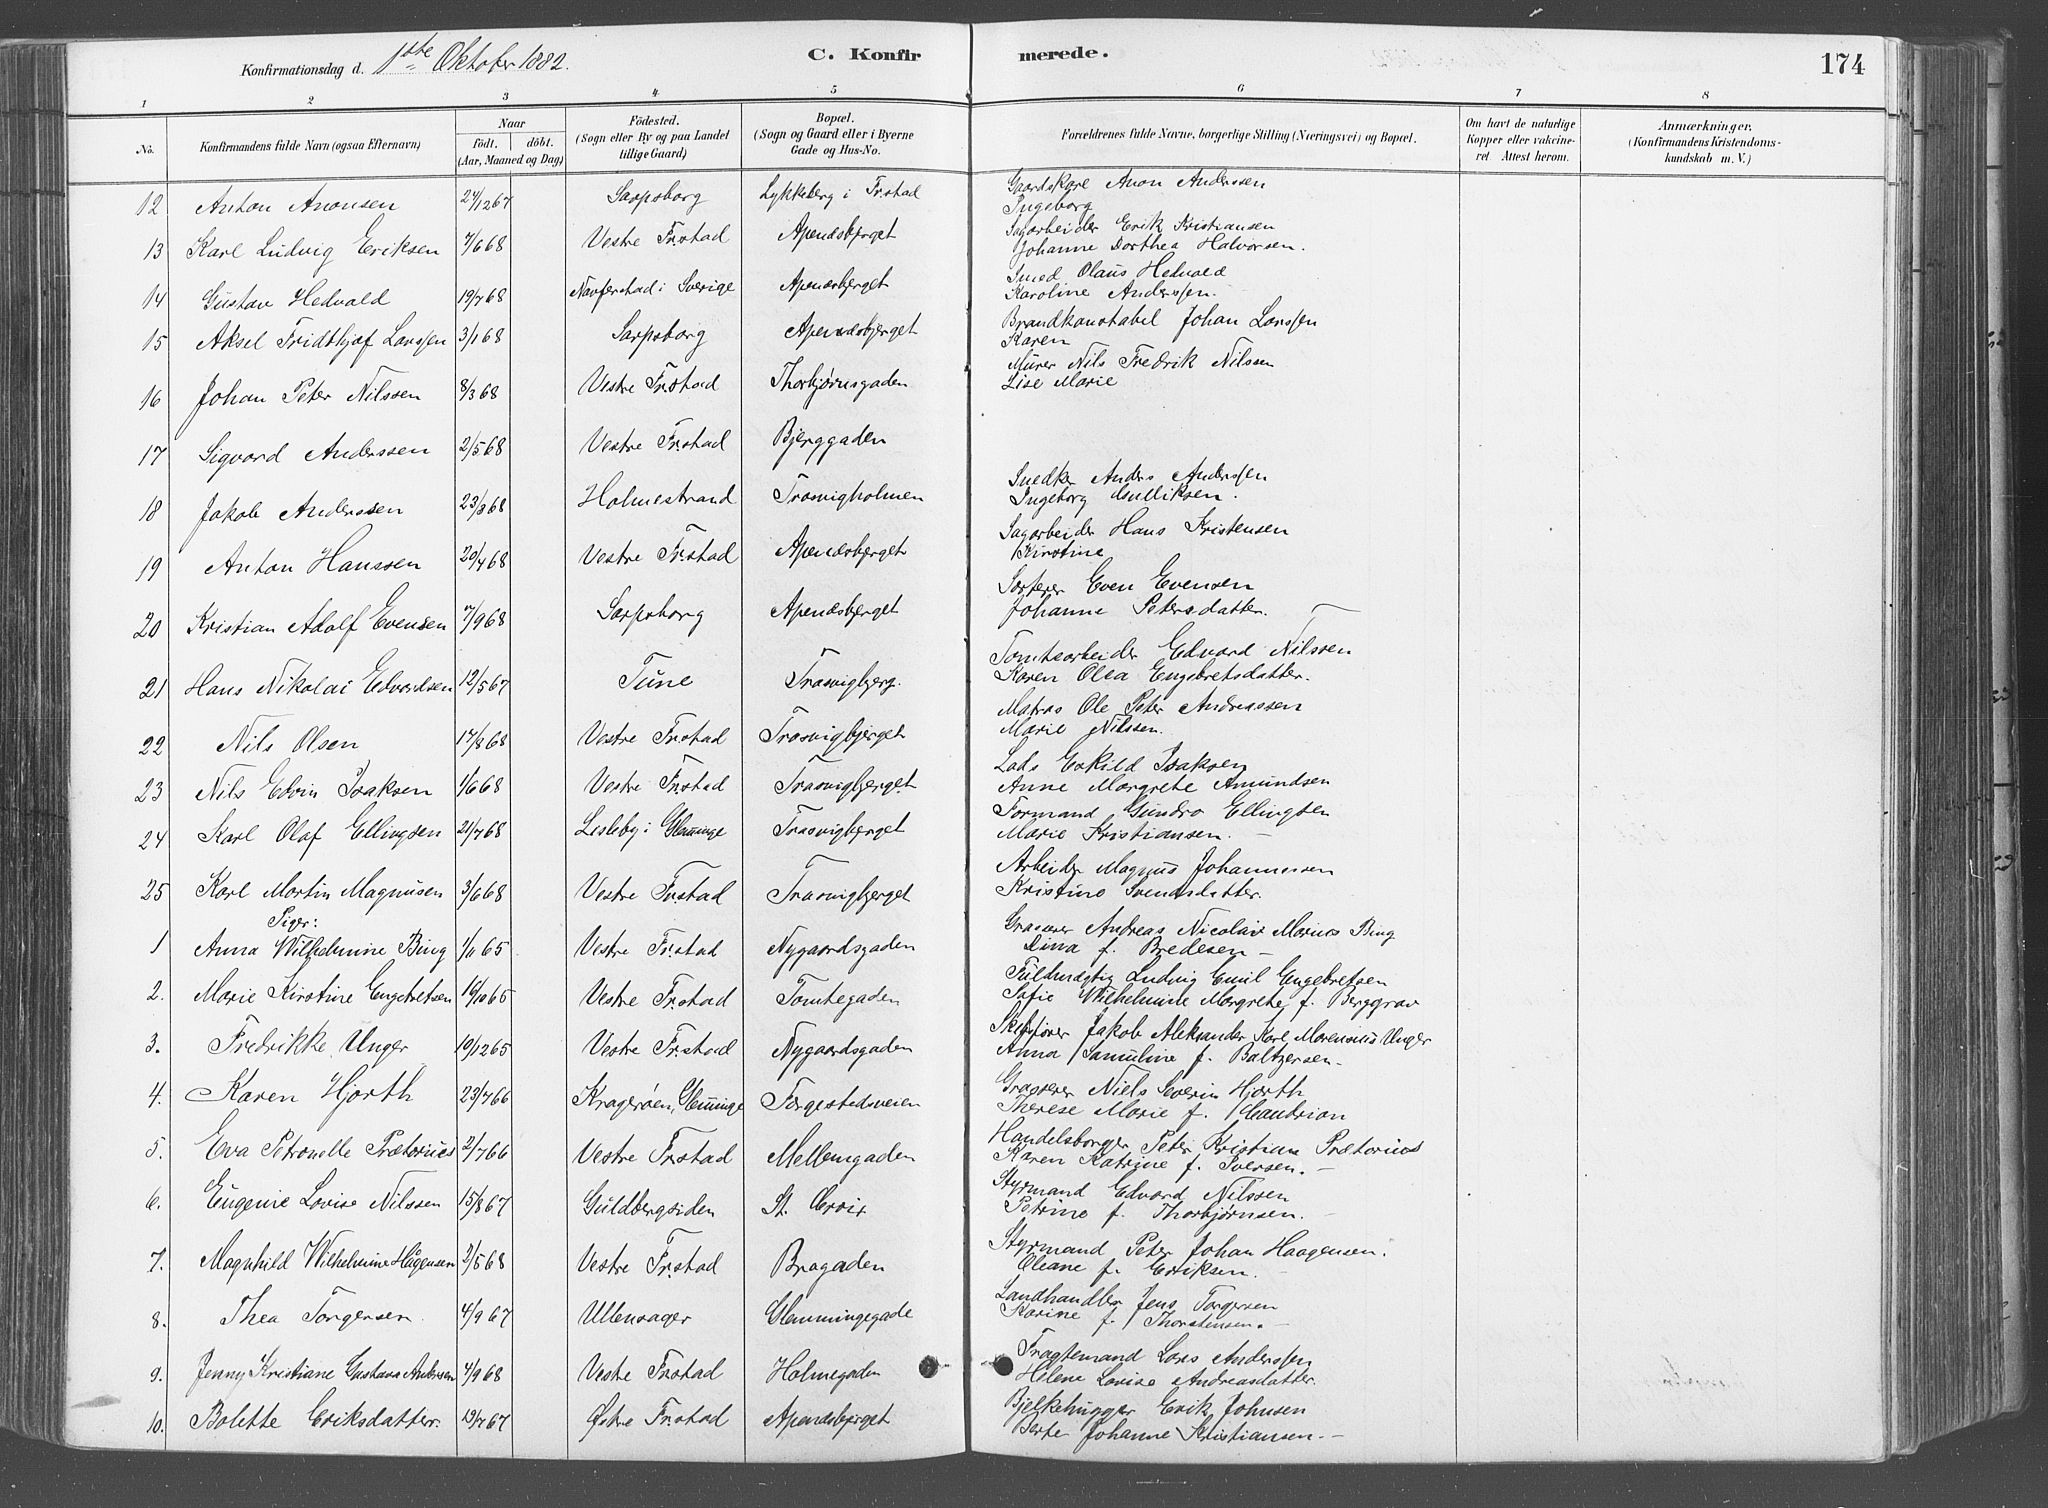 Konfirmationsdag d. 1ste Oktober 1882. C. Konfirmerede. 174
1 2 3 4 5 6 7 8
No. Konfirmandens fulde Navn (ogsaa Efternavn) Naar födt. döbt. (Aar, Maaned og Dag) Födested. (Sogn eller By og paa Landet tillige Gaard) Bopæl. (Sogn og Gaard eller i Byerne Gade og Hus-No. Forældrenes fulde Navne, borgerlige Stilling (Næringsvei) og Bopæl. Om havt de naturlige Kopper eller vakcineret Attest herom. Anmærkninger. (Konfirmandens Kristendomskundskab m. V.)
12 Anton Anonsen 24/12 67 Sarpsborg Lykkeberg i Fr.stad Gaardskare Anon Anderssen
Ingeborg
13 Karl Ludvig Eriksen 7/6 68 Vestre Fr.stad Apenæsbjerget Sagarbeider Erik Kristiansen
Johanne Dorthea Halvorsen.
14 Gustav Hedvald 19/7 68 Navferstad i Sverige Apenæsbjerget Smed Olaus Hedvald
Karoline Anderssen.
15 Aksel Fridthjof Larssen 3/1 68 Sarpsborg Apenæsbjerget Brandkonstabel Johan Larssen
Karen
16 Johan Peter Nilssen 8/3 68 Vestre Fr.stad Thorbjørnsgaden Murer Nils Fredrik Nilssen
Lise Marie
17 Sigvard Anderssen 2/5 68 Vestre Fr.stad Bjerggaden
18 Jakob Anderssen 23/3 68 Holmestrand Trosvigholmen Snedker Anders Anderssen
Ingeborg Gulliksen.
19 Anton Hanssen 20/4 68 Vestre Fr.stad Apenæsbjerget Sagarbeider Hans Kristensen
Kirstine
20 Kristian Adolf Evensen 7/9 68 Sarpsborg Apenæsbjerget Sorterer Even Evensen
Johanne Petersdatter.
21 Hans Nikolai Edvardsen 12/5 67 Tune Trosvigbjerg. Tomtearbeider Edvard Nilssen
Karen Olea Engebretsdatter.
22 Nils Olsen 17/8 68 Vestre Fr.stad Trosvigbjerget Matros Ole Peter Andreassen
Marie Nilssen.
23 Nils Edvin Isaksen 1/6 68 Vestre Fr.stad Trosvigbjerget Lods Eskild Isaksen
Anne Margrete Amundsen
24 Karl Olaf Ellingsen 21/7 68 Lisleby i Glemminge Trosvigbjerget Formand Gundro Ellingsen
Marie Kristiansen.
25 Karl Martin Magnusen 3/6 68 Vestre Fr.stad Trosvigbjerget Arbeider Magnus Johannessen
Kristine Svendsdatter.
Piger:
1 Anna Wilhelmine Bing 1/11 65 Vestre Fr.stad Nygaardsgaden Grosserer Andreas Nicolai Marius Bing
Dina f. Bredesen
2. Marie Kirstine Engebretsen 16/10 65 Vestre Fr.stad Tomtegaden Fuldmægtig Ludvig Emil Engebretsen
Sofie Wilhelmine Margrete f. Berggrav
3. Fredrikke Unger 10/12 65 Vestre Fr.stad Nygaardsgaden Skibsfører Jakob Aleksander Karl Marensius Unger
Anna Samuline f. Baltzersen.
4. Karen Hjorth 23/7 66 Kragerøen, Glemminge Torgestedsveien Grosserer Niels Severin Hjorth
Therese Marie f.
5. Eva Petronelle Prætorius 2/7 66 Vestre Fr.stad Mellemgaden Handelsborger Peter Kristian Prætorius
Karen Katrine f. Iversen.
6. Eugenie Lovise Nilssen 15/8 67 Guldbergsiden St. Croix Styrmand Edvard Nilssen
Petrine f. Thorbjørnsen.
7. Magnhild Wilhelmine Hågensen 2/5 68 Vestre Fr.stad Brogaden Styrmand Peter Johan Haagensen.
Oleane f. Eriksen.
8. Thea Torgersen 4/9 67 Ullensager Glemmingegade Landhandler Jens Torgersen
Karine f. Thorstensen.
9. Jenny Kristiane Gustava Andersen 4/9 68 Vestre Fr.stad Holmegaden Fragtemand Lars Anderssen
Helene Lovise Andreasdatter.
10. Bolette Eriksdatter. 19/7 67 Østre Fr.stad Apenæsbjerget Bjelkehugger Erik Johnsen
Berte Johanne Kristiansen.